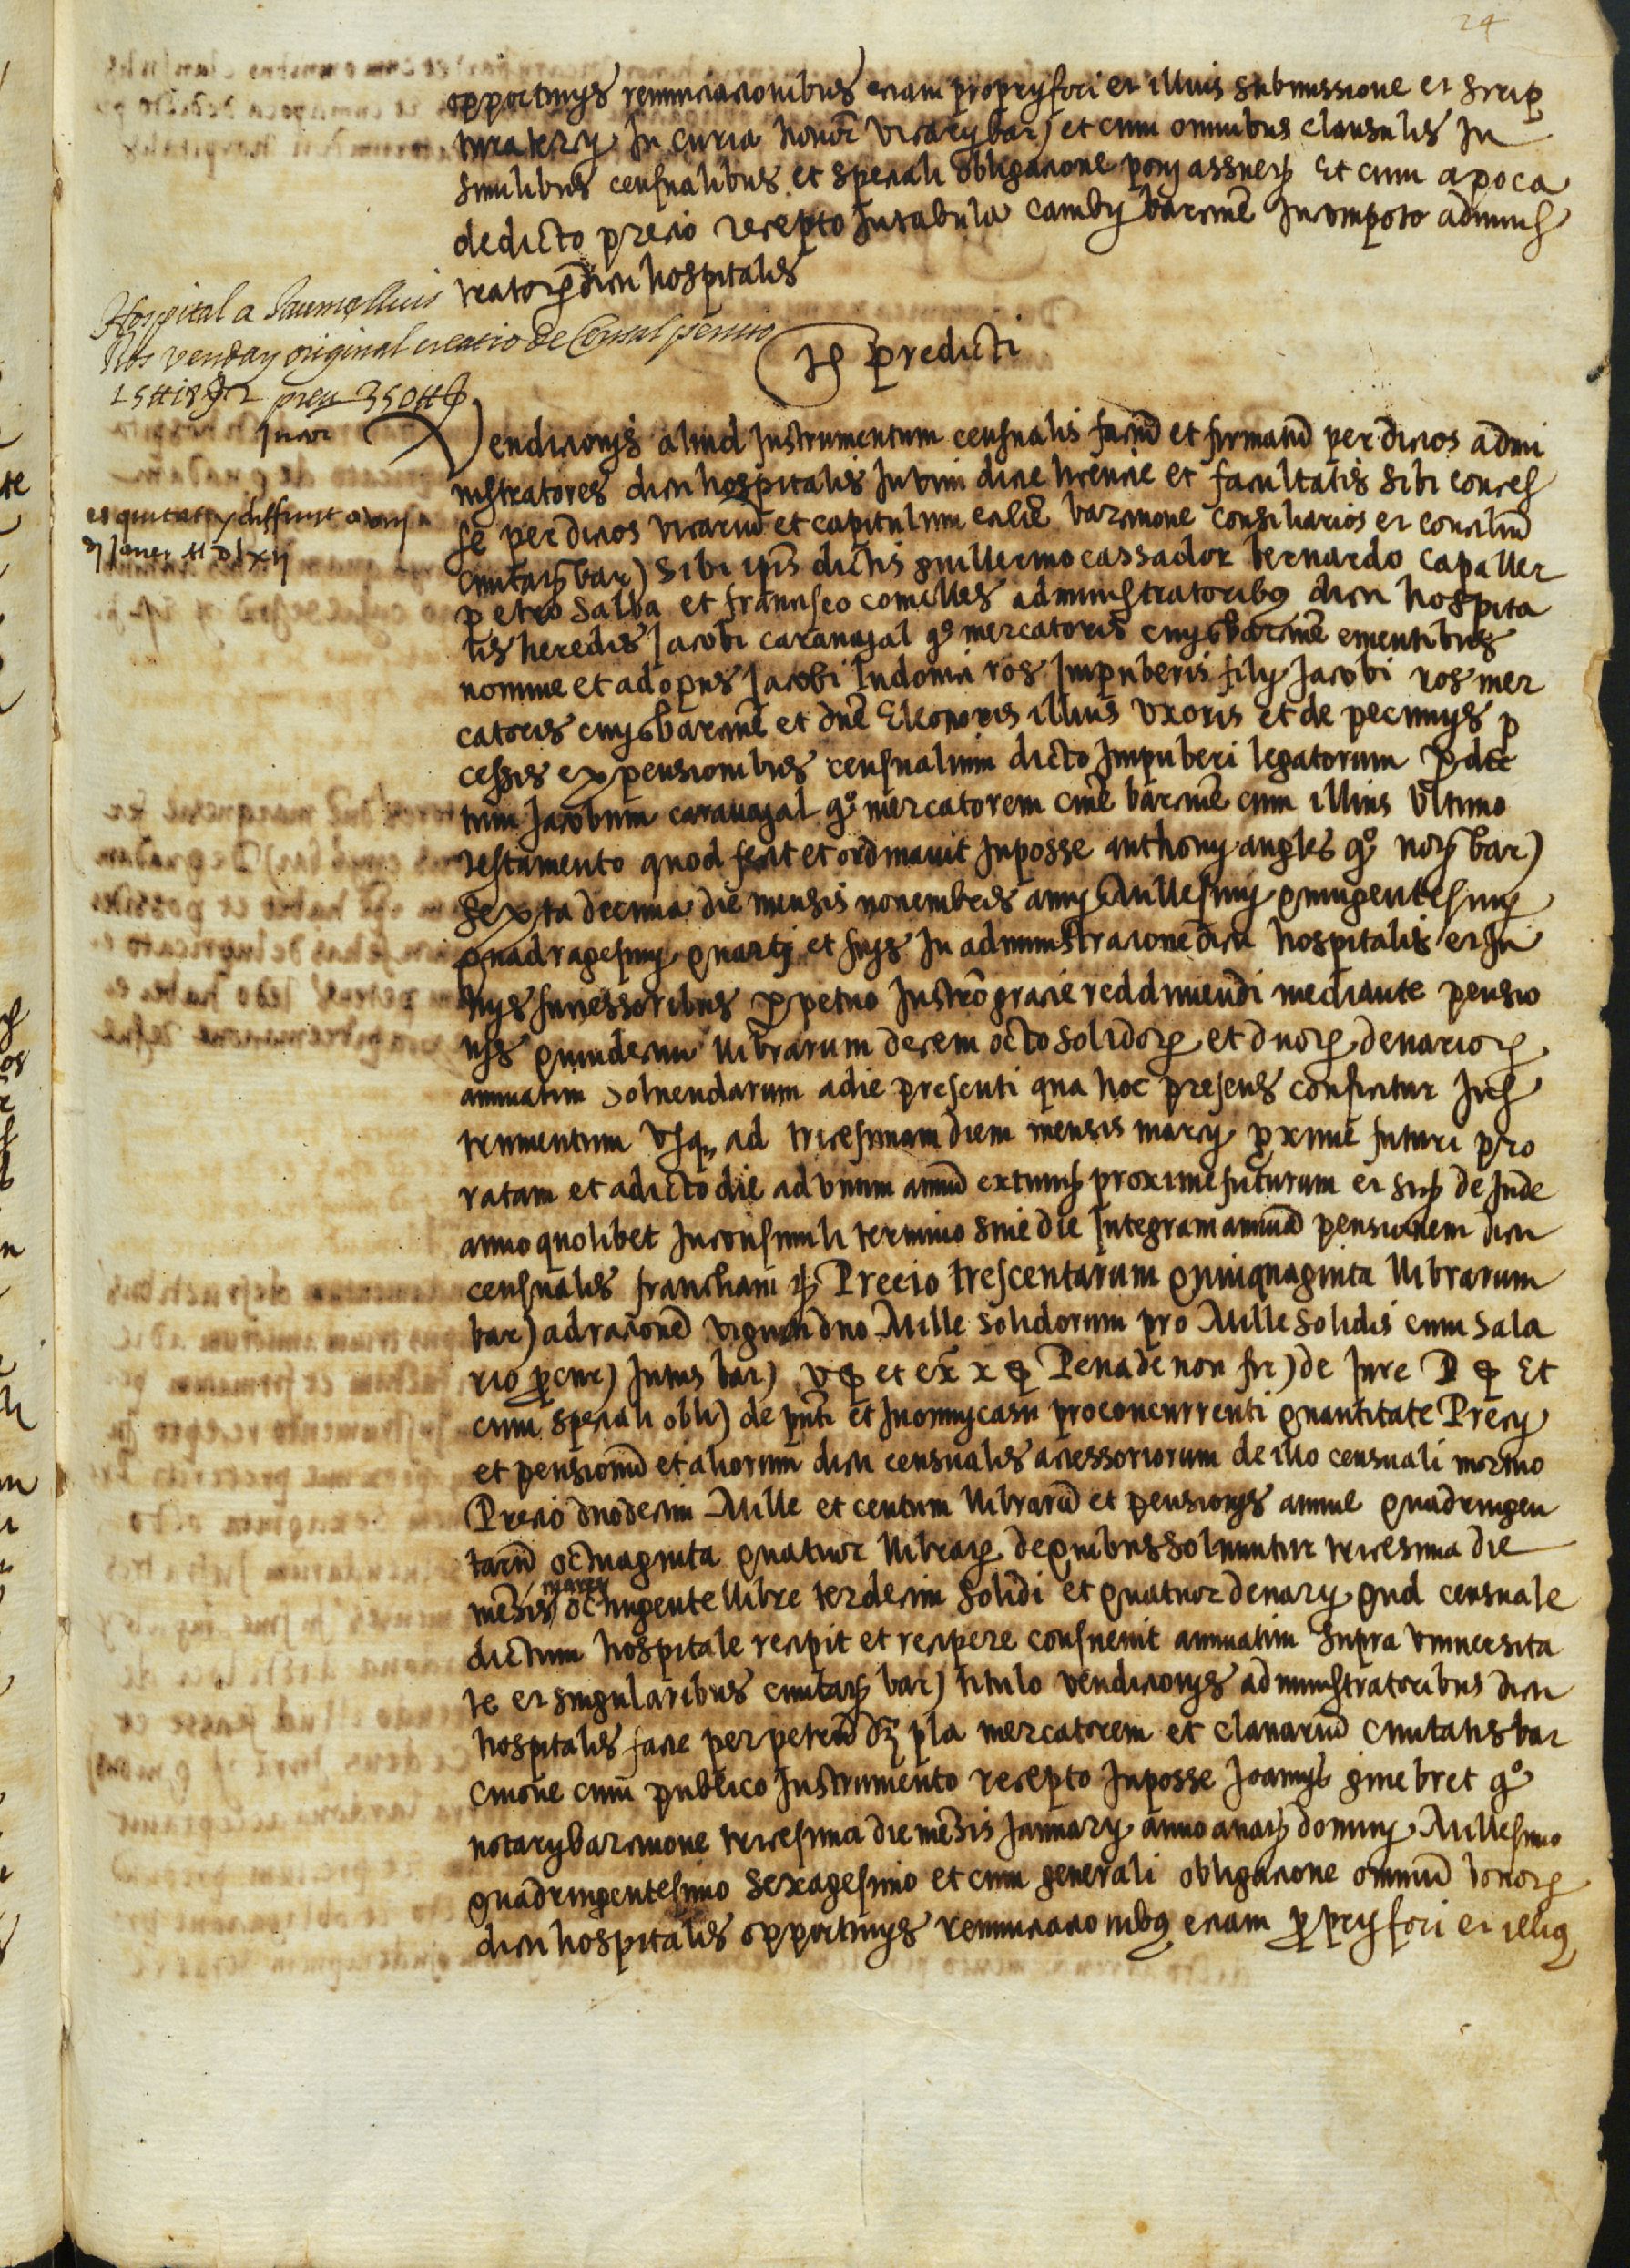 24
opportunys renunciacionibus eciam propry fori et illius submissione et scrip
tura tercy In curia honorᷓ vicary bar) et cum omnibus clausulis In
similibus censualibus et speciali obligacione pony assuetꝭ Et cum apoca
de dicto precio recepto In tabula camby barcinoñ In computo adminis
tratorꝭ dicti hospitalis
Hospital a Jaume lluis
Ros venda y original creacio de Censal pensio
15 ₶ 18 ß 2 preu 350 ₶ ß
Iũ predicti
Jurat
Vendicionys aliud Instrumentum censualis factũ et firmatũ per dictos admi
nistratores dicti hospitalis In vim dicte licencie et facultatis sibi conces
es quitat y diffinit a vny
de Janer M D lxij
se per dictos vicariũ et capitulum ecclie barcinone consiliarios et conciliũ
civitatꝭ bar) sibi ipis dictis guillermo cassador bernardo capaller
petro salba et francisco comelles administratoribus dicti hospita
lis heredis Jacobi caravajal qº mercatoris civis barcinoñ ementibus
nomine et ad opus Jacobi ludovici ros Impuberis fily Jacobi ros mer
catoris civis barcinoñ et dñe Eleonoris illius vxoris et de pecunys p
cessis ex pensionibus censualium dicto Impuberi legatorum ꝑ dic
tum Jacobum caravajal qº mercatorem civem barcinoñ cum illius vltimo
testamento quod fecit et ordinauit In posse anthony angles qº notꝭ bar)
sexta decima die mensis nouembris anny Millesimy quingentesimy
quadragesimy quarty et suys In administracione dicti hospitalis et In
hys successoribus ꝑpetuo Instrõ gracie reddimendi mediante pensio
nys quindecim librarum decem octo solidorꝭ et duorꝭ denariorꝭ
annuatim soluendarum a die presenti qua hoc presens conficitur Ins
trumentum vsqꝫ ad tricesimam diem mensis marcy ꝓxime futuri pro
ratam et a dicto die ad vnum annũ extunc proxime futurum et sic de Inde
anno quolibet In consimili termino siue die Integram annuã pensionem dicti
censualis francham ꝛc Precio trescentarum quinquaginta librarum
bar) ad racionẽ viginti duo Mille solidorum pro Mille solidis cum sala
rio ꝓcur) Intus bar) v ß et ex̃ x ß Pena de non fir) de Jure D ß Et
cum speciali obli) de pñti et In omny casu pro concurrenti quantitate Precy
et pensionũ et aliorum dicti censualis accessoriorum de illo censuali mortuo
Precio duodecim Mille et centum librarũ et pensionys annue quadringen
tarũ octuaginta quatuor librarꝭ de quibus soluuntur tricesima die
mẽsis marcy octingente libre terdecim solidi et quatuor denary quod censuale
dictum hospitale recipit et recipere consueuit annuatim supra vniuersita
te et singularibus civitatꝭ bar) titulo vendicionys administratoribus dicti
hospitalis facte per petrũ dez pla mercatorem et clauariũ civitatis bar
cinone cum publico Instrumento recepto In posse Joannys ginebret qº
notary barcinone tricesima die mẽsis January anno a natꝭ dominy Millesimo
quadringentesimo sexagesimo et cum generali obligacione omniũ bonorꝭ
dicti hospitalis opportunys renunciacionibus eciam ꝓpry fori et illius